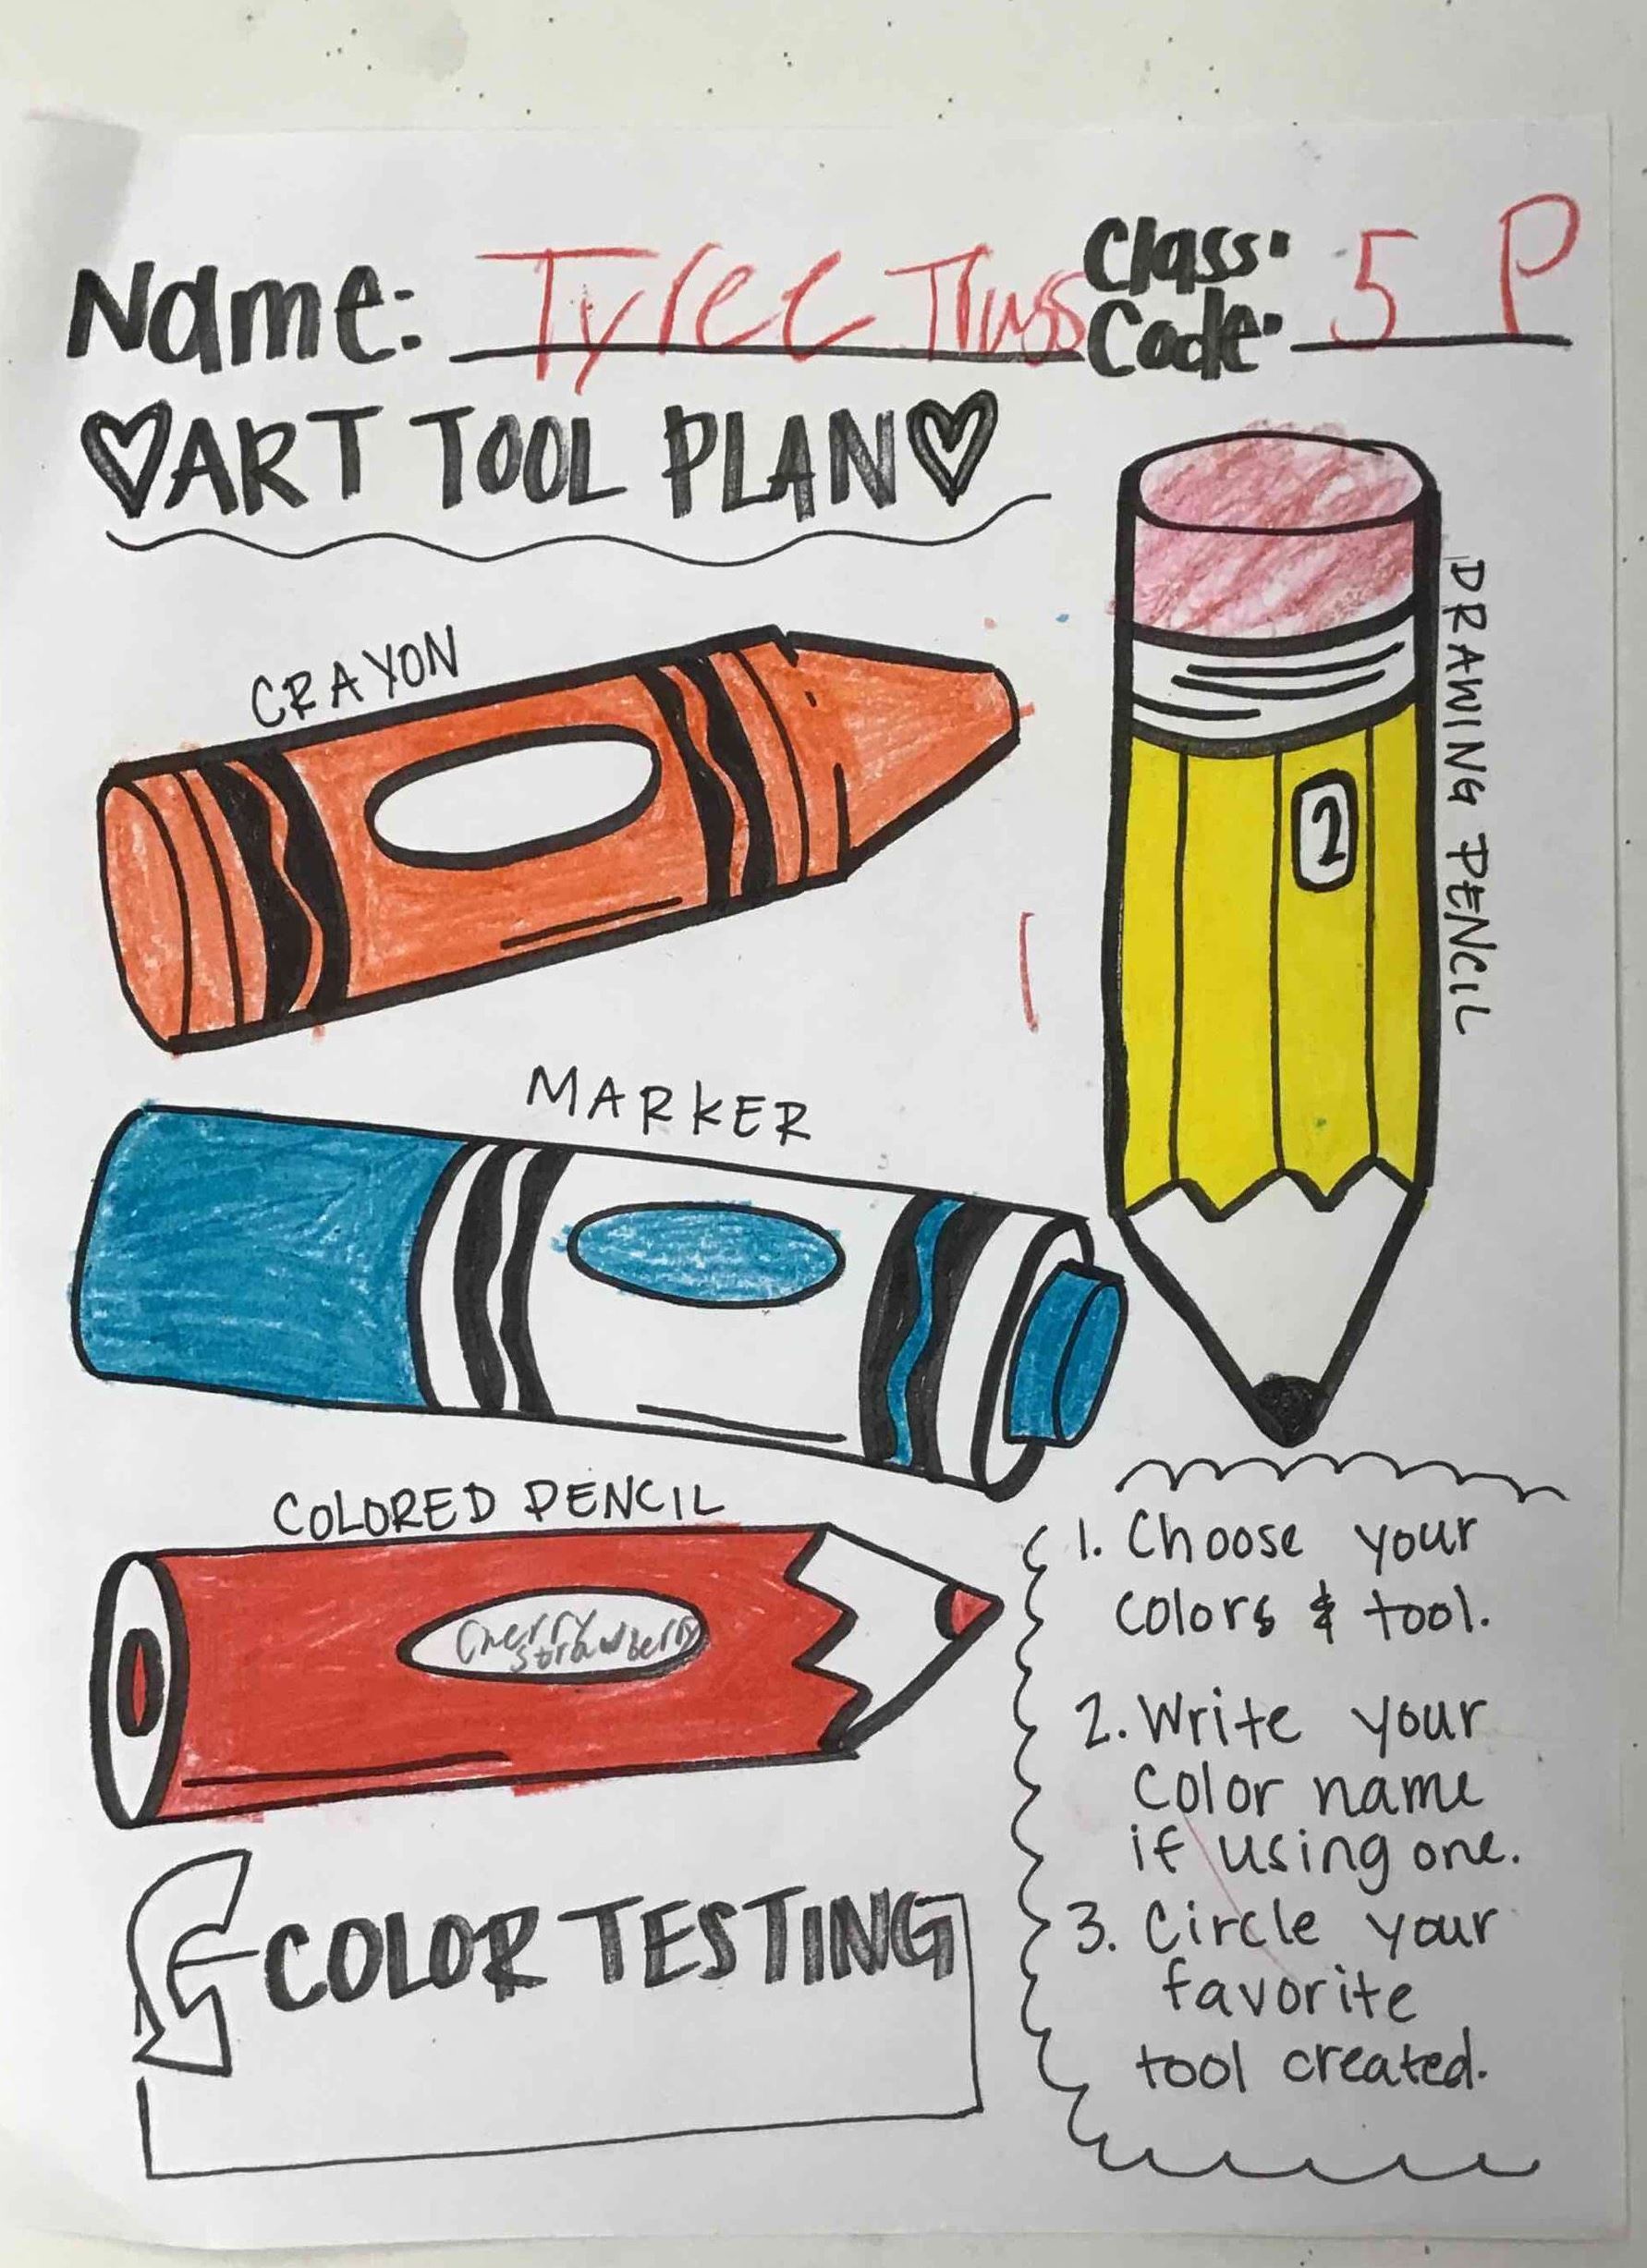 Name: Tyree Class: 5 P
Code:
ART TOOL PLAN
CRAYON
DRAWING PENCIL
2
MARKER
COLORED PENCIL
Cherry
strawberry
1. Choose your
colors & tool.
2. Write your
color name
if using one.
3. Circle your
favorite
tool created.
COLOR TESTING